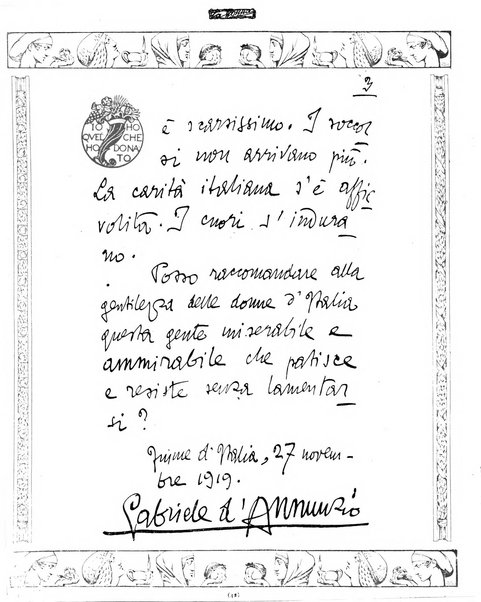 3
IO HO
QUEL CHE
HO DONA
TO
è scarsissimo. I soccor
si non arrivano più.
La carità italiana s'è affie
volita. I cuori s'indura
no.
Posso raccomandare alla
gentilezza delle donne d'Italia
questa gente miserabile e
ammirabile che patisce
e resiste senza lamentar
si?
Fiume d'Italia, 27 novem-
bre 1919.
Gabriele d'Annunzio
(42)